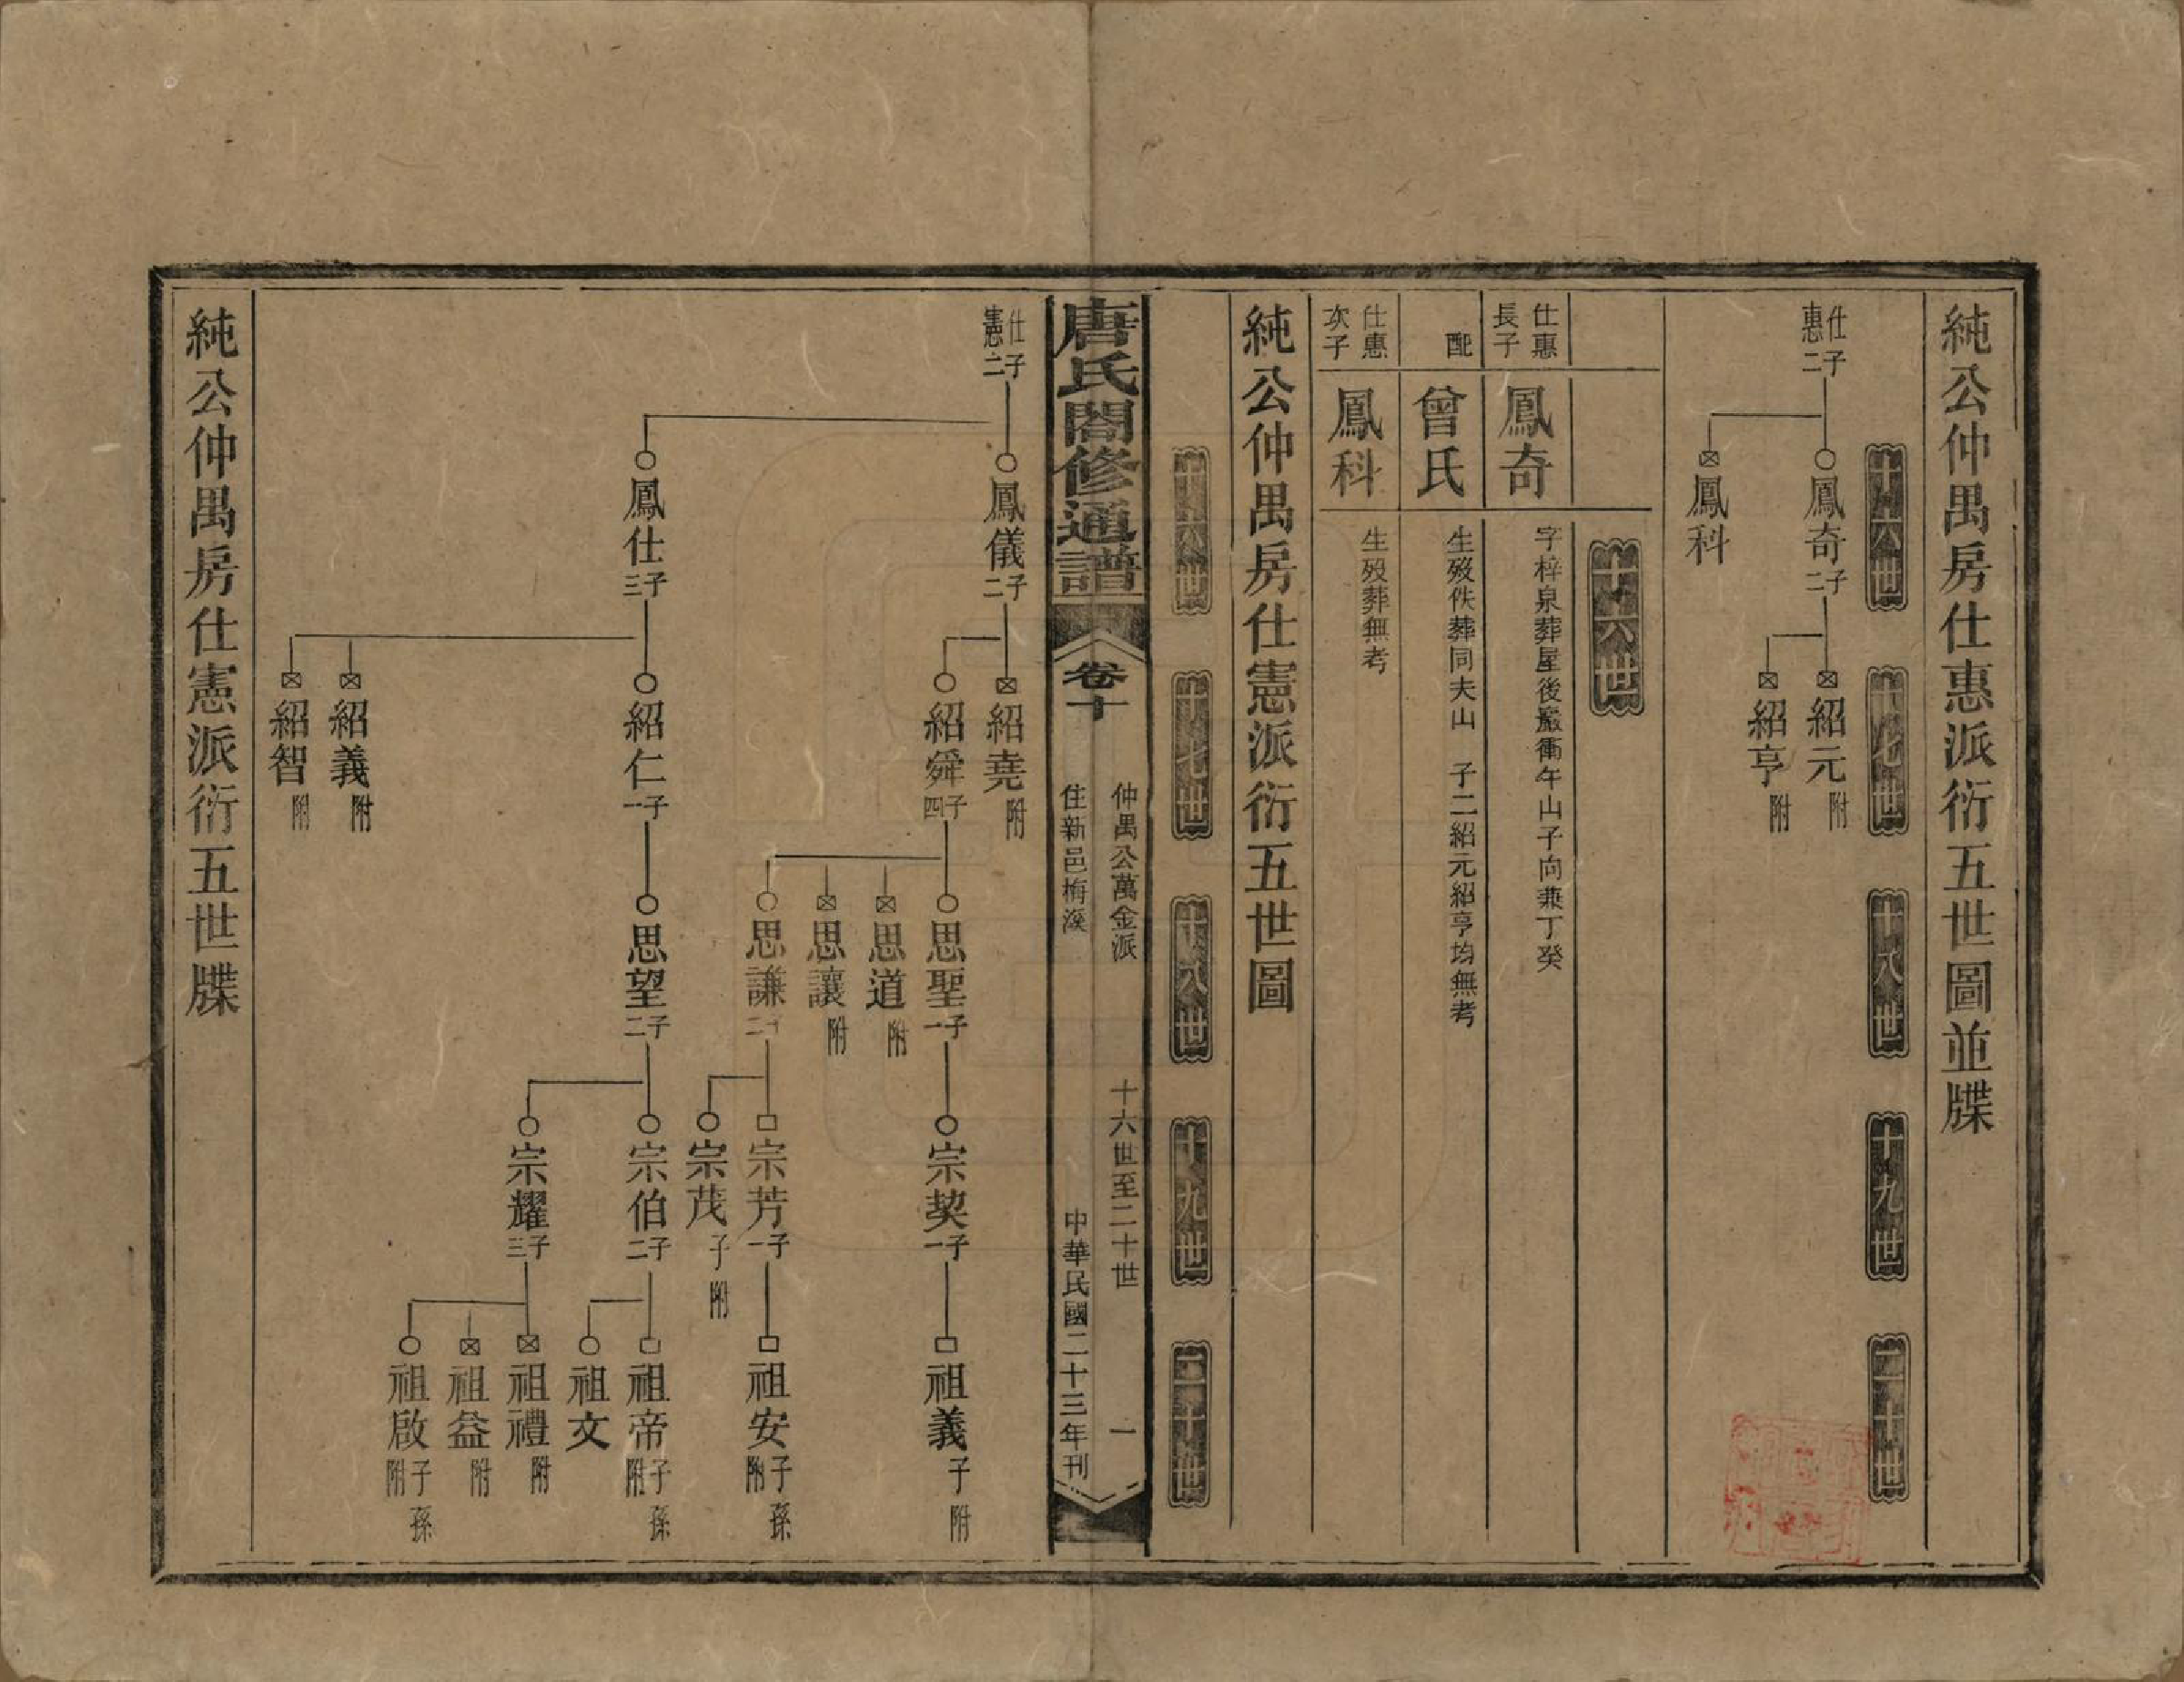 純公仲禺房仕惠派衍五世圖並牒
十六世
十七世
十八世
十九世
二十世
仕惠二子
鳳奇二子
紹元附
紹亨附
鳳科
十六世
仕惠長子
鳳奇
字梓泉葬屋後巖衝午山子向兼丁癸
配
曾氏
生歿佚葬同夫山 子二紹元紹亨均無考
仕惠次子
鳳科
生歿葬無考
純公仲禺房仕憲派衍五世圖
十六世
十七世
十八世
十九世
二十世
唐氏閤修通譜
卷十
仲禺公萬金派
住新邑梅溪
十六世至二十世
一
中華民國二十三年刊
仕憲二子
鳳儀二子
紹堯附
紹舜四子
思聖一子
宗契一子
祖義子附
思道附
思讓附
思謙二子
宗芳一子
祖安子孫附
宗茂子附
鳳仕三子
紹仁一子
思望二子
宗伯二子
祖帝子孫附
祖文
宗耀三子
祖禮附
祖益附
祖啟子孫附
紹義附
紹智附
純公仲禺房仕憲派衍五世牒